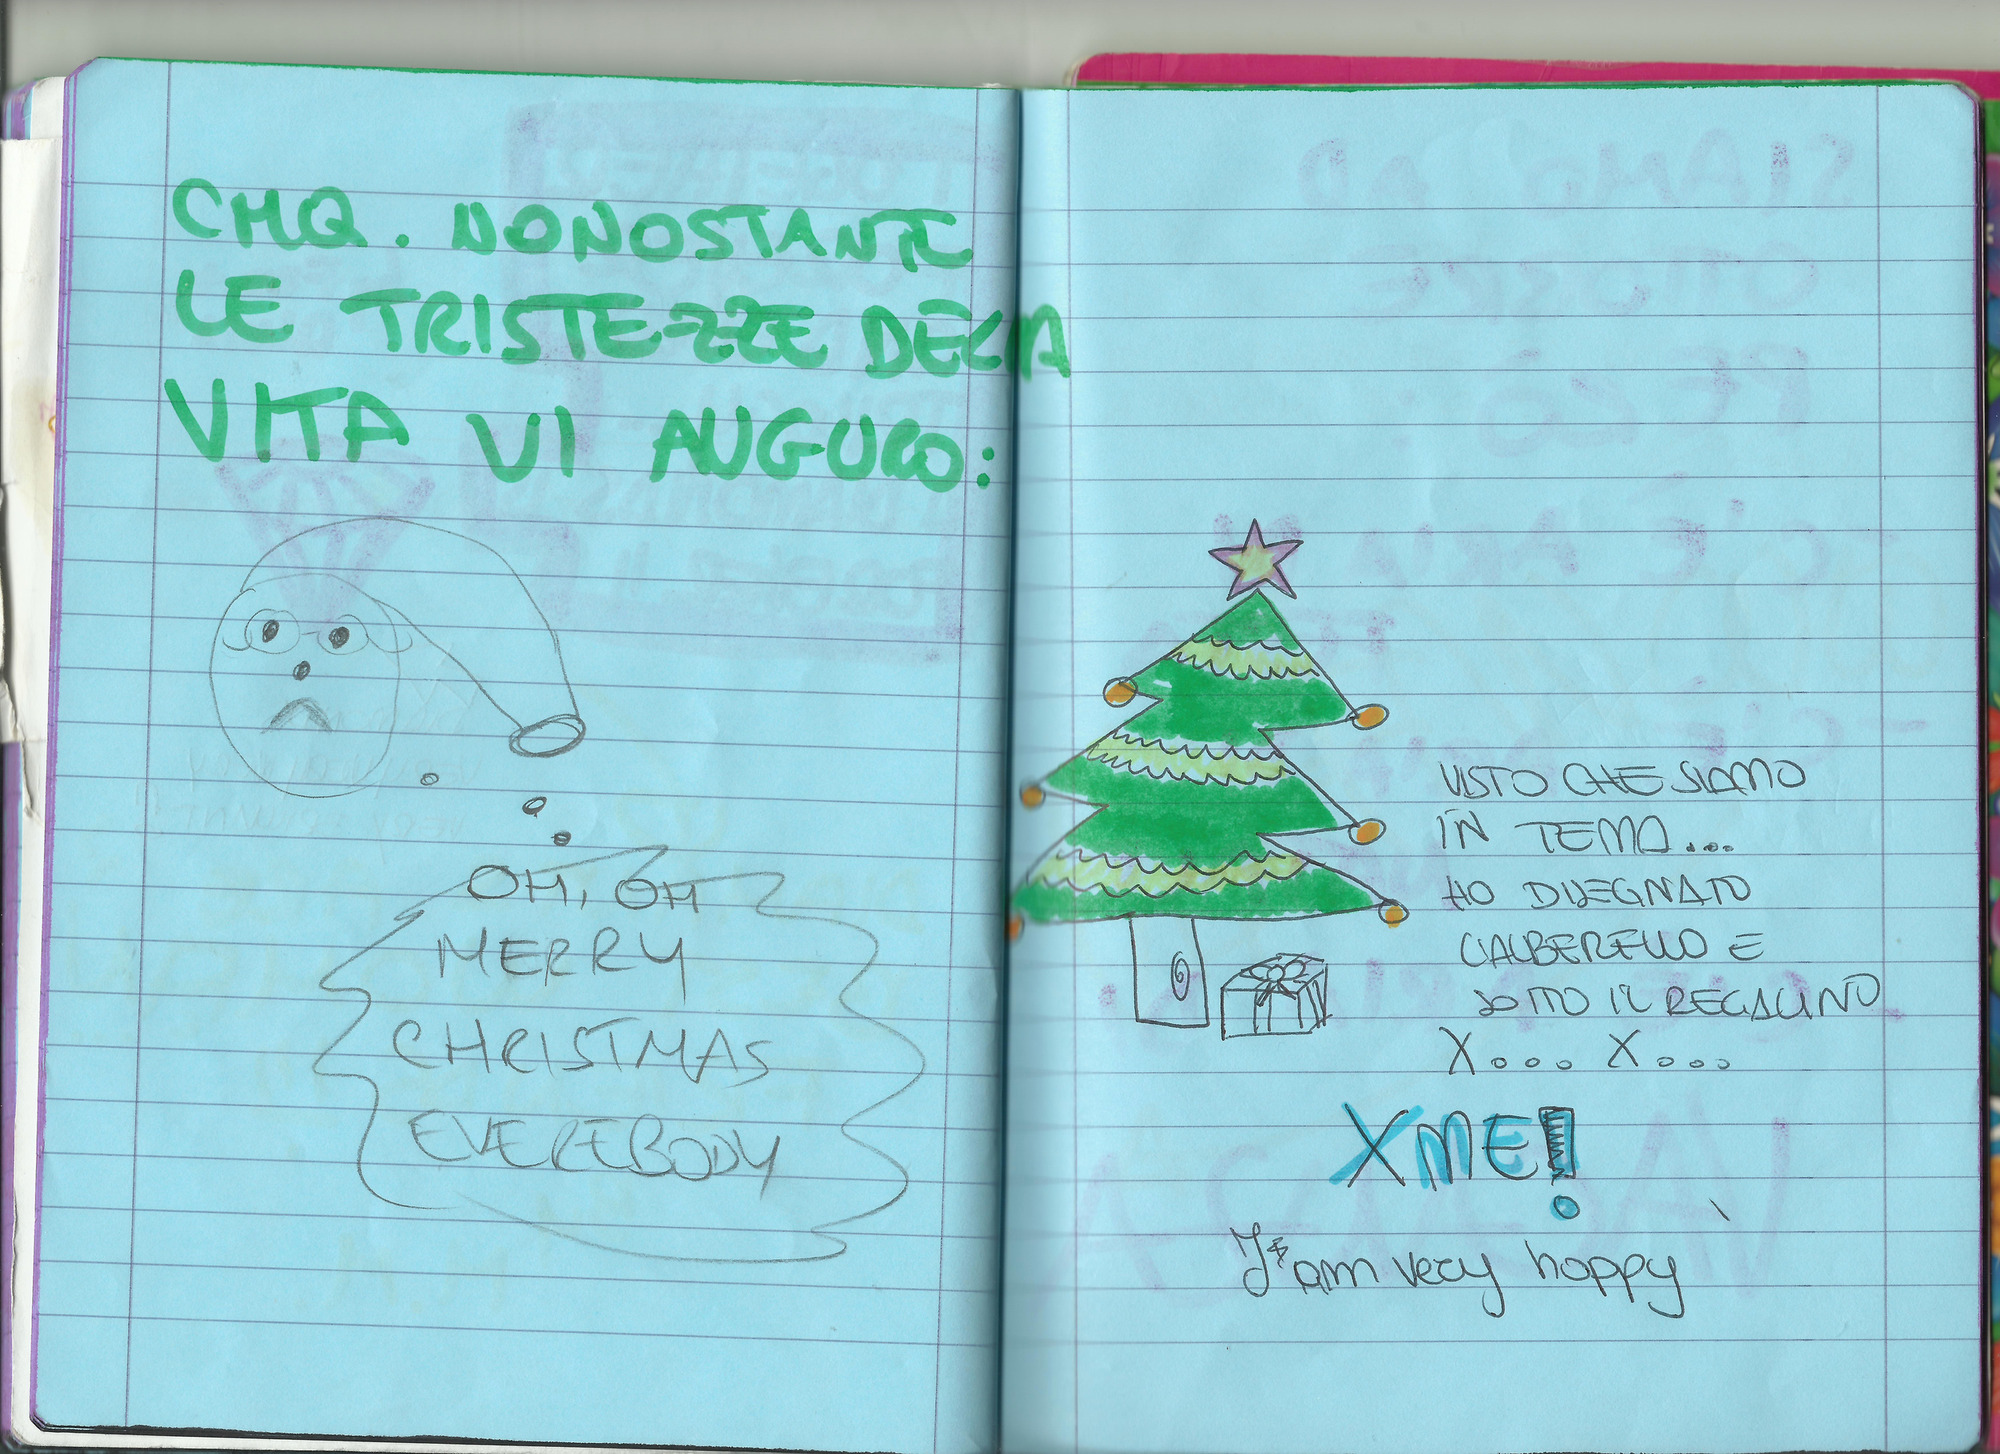 CMQ. NONOSTANTE
LE TRISTEZZE DELLA
VITA VI AUGURO:
OH, OH
MERRY
CHRISTMAS
EVEREBODY
VISTO CHE SIAMO
IN TEMA...
HO DISEGNATO
L'ALBERELLO E
SOTTO IL REGALINO
X.... X....
XME!
I am very happy